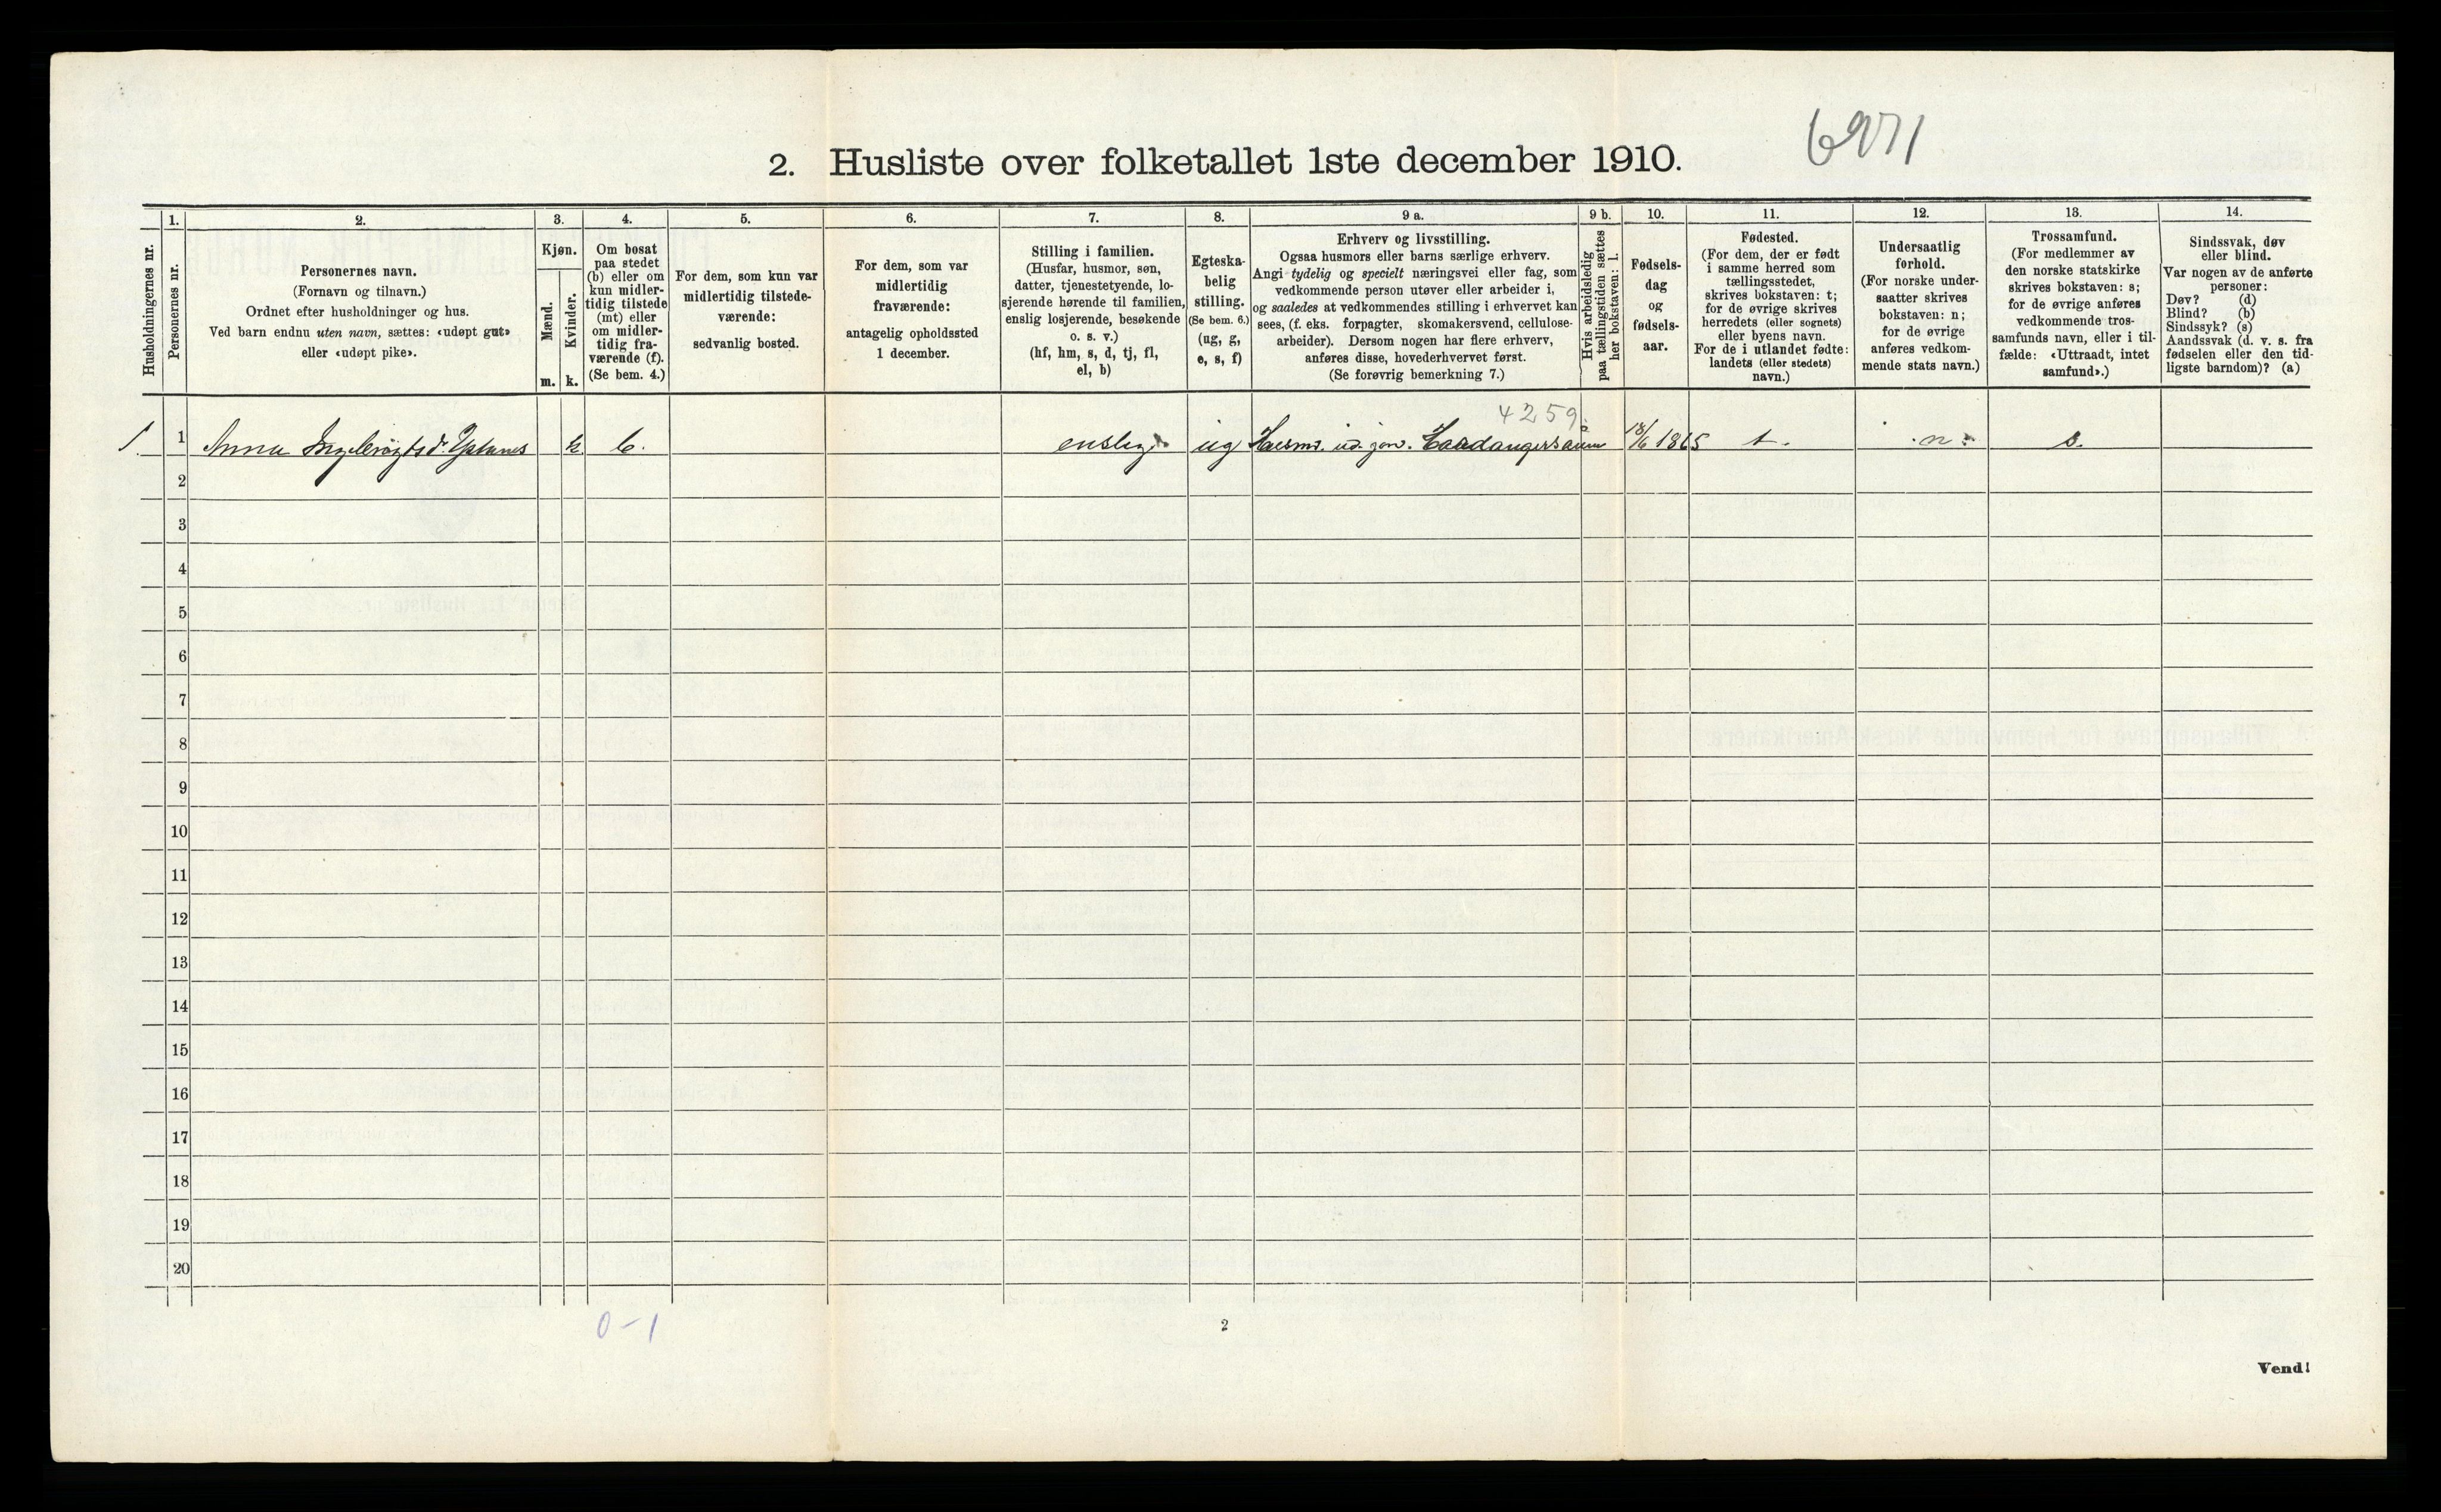 6971
2. Husliste over folketallet 1ste december 1910.
Husholdningernes nr.
1.
Personernes nr.
2.
Personernes navn.
(Fornavn og tilnavn.)
Ordnet efter husholdninger og hus.
Ved barn endnu uten navn, sættes: «udøpt gut»
eller «udøpt pike».
3.
Kjøn.
Mænd.
Kvinder.
m. k.
4.
Om bosat
paa stedet
(b) eller om
kun midler-
tidig tilstede
(mt) eller
om midler-
tidig fra-
værende (f).
(Se bem. 4.)
5.
For dem, som kun var
midlertidig tilstede-
værende:
sedvanlig bosted.
6.
For dem, som var
midlertidig
fraværende:
antagelig opholdssted
1 december.
7.
Stilling i familien.
(Husfar, husmor, søn,
datter, tjenestetyende, lo-
sjerende hørende til familien,
enslig losjerende, besøkende
o. s. v.)
(hf, hm, s, d, tj, fl,
el, b)
8.
Egteska-
belig
stilling.
(Se bem. 6.)
(ug, g,
e, s, f)
9 a.
Erhverv og livsstilling.
Ogsaa husmors eller barns særlige erhverv.
Angi tydelig og specielt næringsvei eller fag, som
vedkommende person utøver eller arbeider i,
og saaledes at vedkommendes stilling i erhvervet kan
sees, (f. eks. forpagter, skomakersvend, cellulose-
arbeider). Dersom nogen har flere erhverv,
anføres disse, hovederhvervet først.
(Se forøvrig bemerkning 7.)
9 b.
Hvis arbeidsledig
paa tællingstiden sættes
her bokstaven: l.
10.
Fødsels-
dag
og
fødsels-
aar.
11.
Fødested.
(For dem, der er født
i samme herred som
tællingsstedet,
skrives bokstaven: t;
for de øvrige skrives
herredets (eller sognets)
eller byens navn.
For de i utlandet fødte:
landets (eller stedets)
navn.)
12.
Undersaatlig
forhold.
(For norske under-
saatter skrives
bokstaven: n;
for de øvrige
anføres vedkom-
mende stats navn.)
13.
Trossamfund.
(For medlemmer av
den norske statskirke
skrives bokstaven: s;
for de øvrige anføres
vedkommende tros-
samfunds navn, eller i til-
fælde: «Uttraadt, intet
samfund».)
14.
Sindssvak, døv
eller blind.
Var nogen av de anførte
personer:
Døv? (d)
Blind? (b)
Sindssyk? (s)
Aandssvak (d. v. s. fra
fødselen eller den tid-
ligste barndom)? (a)
4259
1. 1 Anna k b. enslig ug Hardangersaum 18/6 1865 t. n. s.
2
3
4
5
6
7
8
9
10
11
12
13
14
15
16
17
18
19
20
0-1
2
Vend!